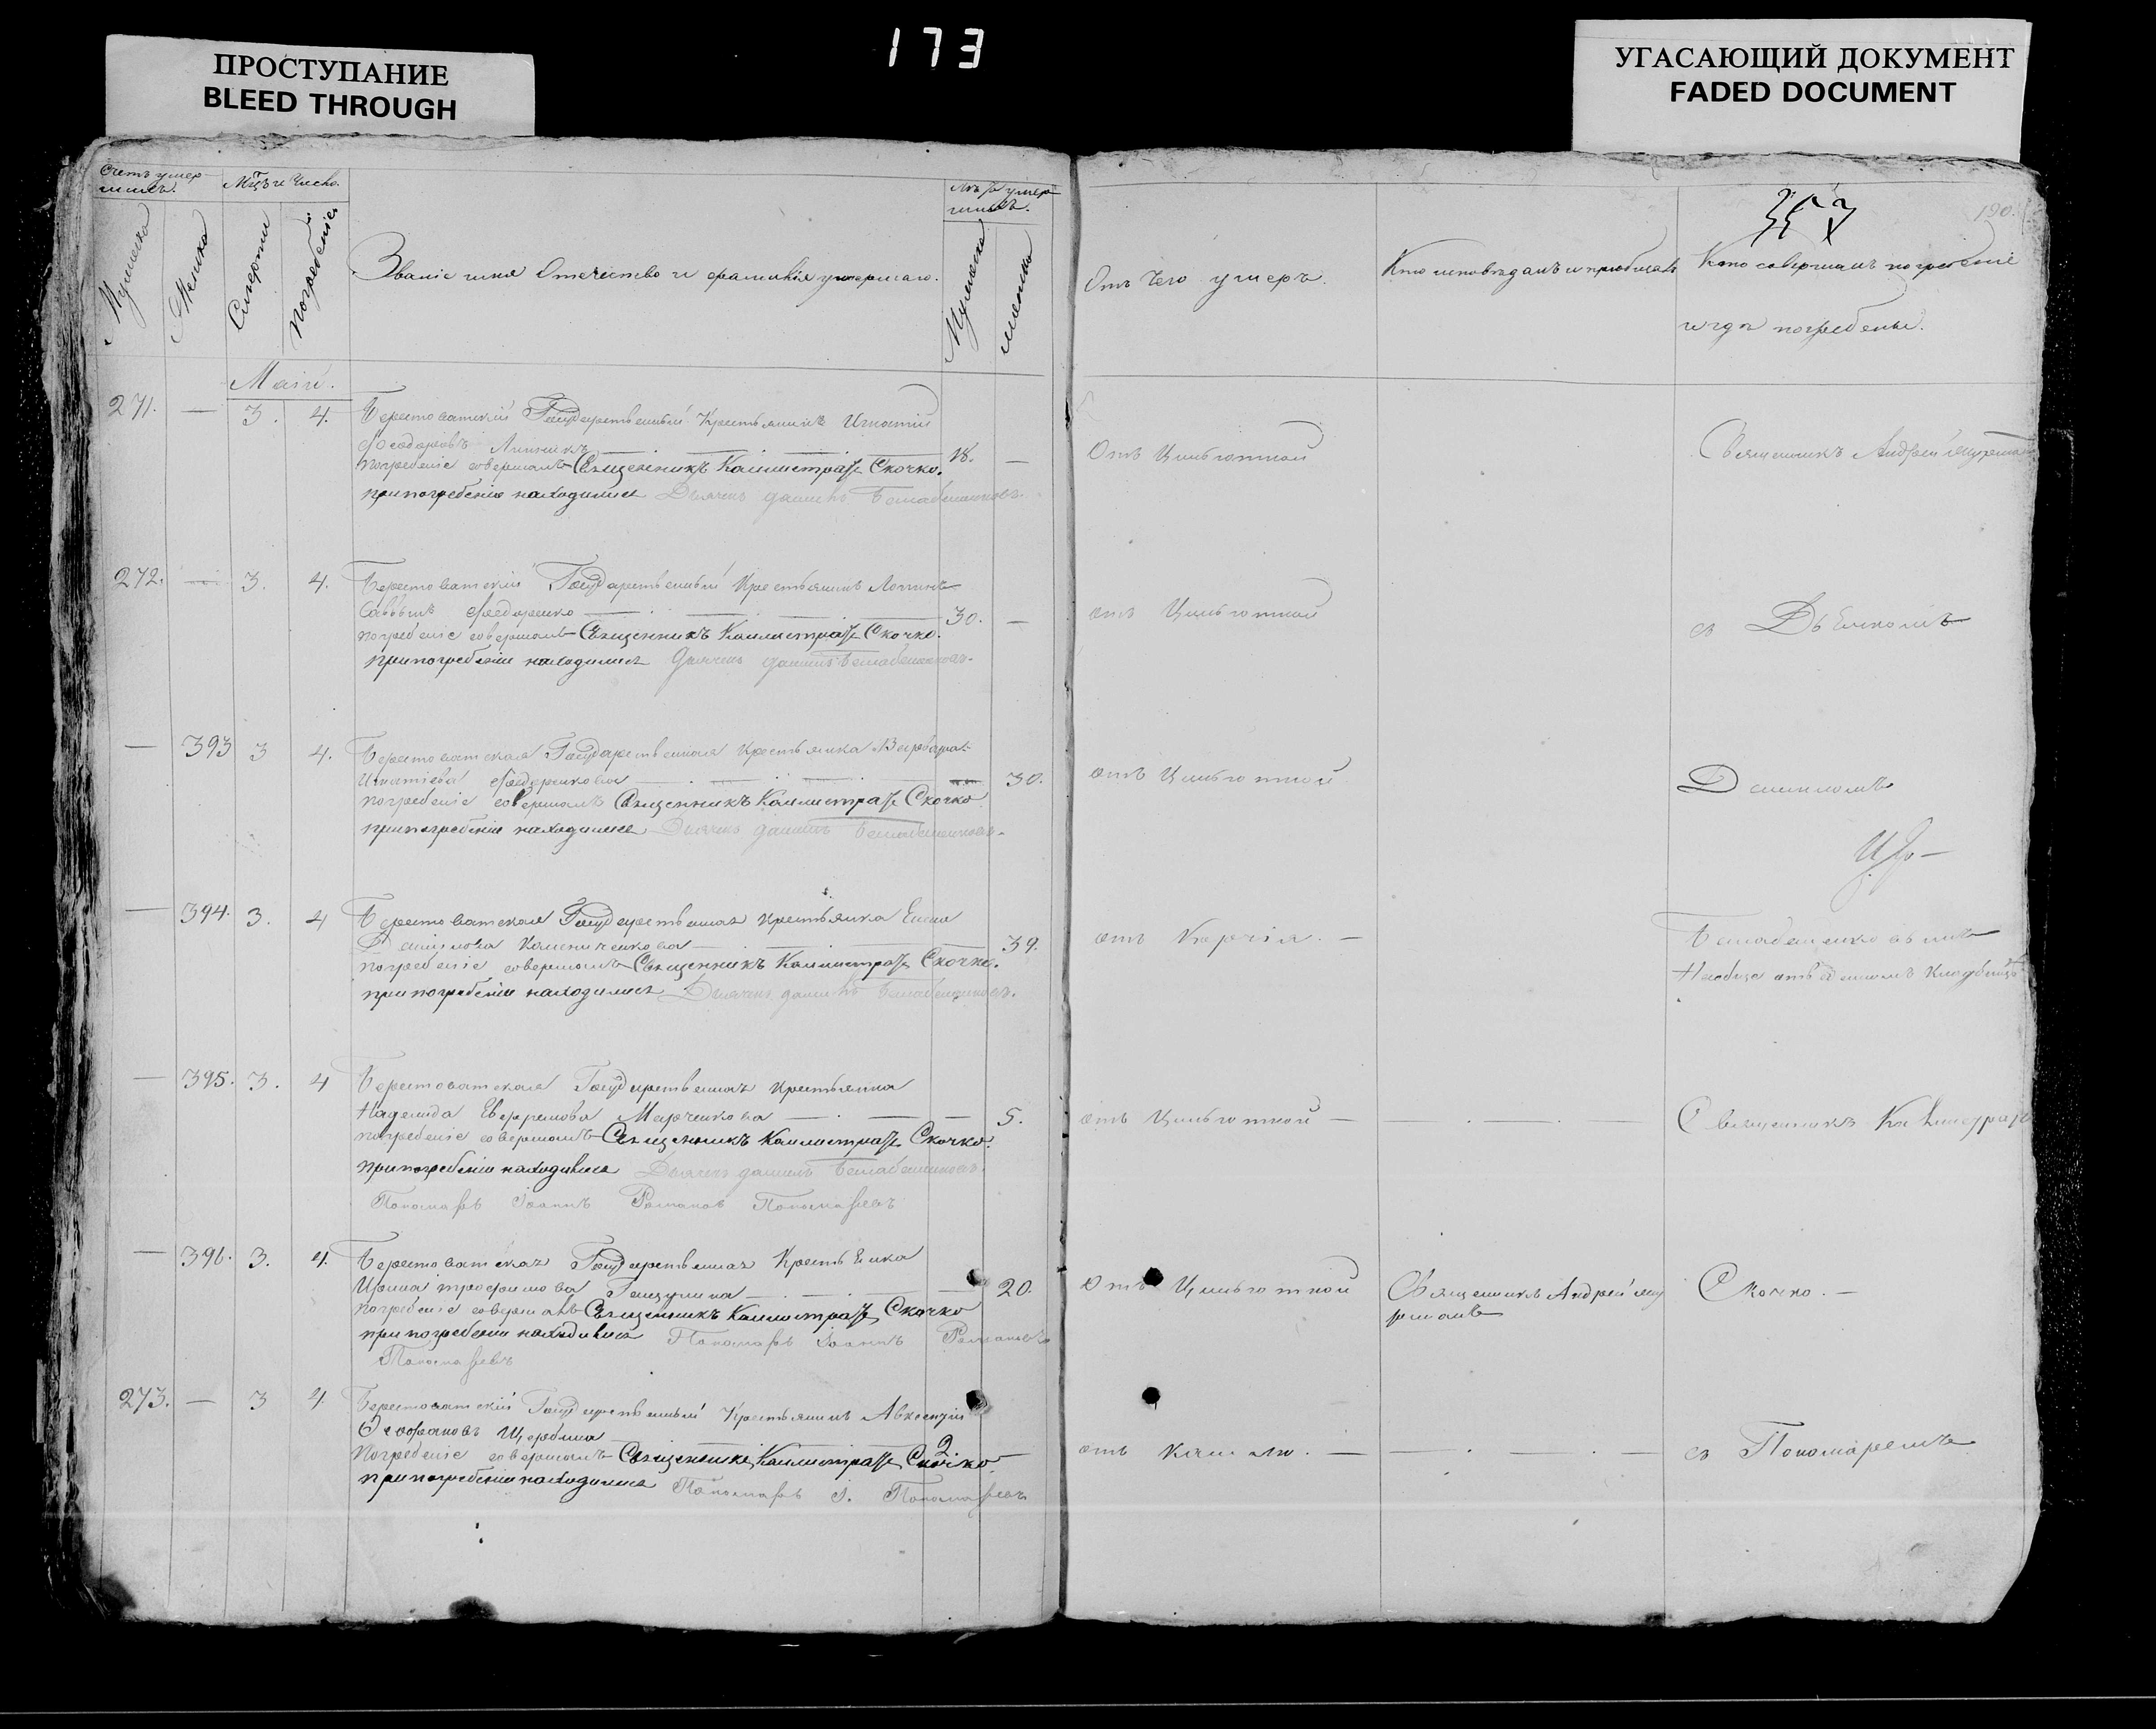 173
ПРОСТУПАНИЕ
BLEED THROUGH
УГАСАЮЩИЙ ДОКУМЕНТ
FADED DOCUMENT
Счетъ умер
шихъ.
Мцъ и Число.
Мужеска
Женска
Смерти
Погребенія
Званіе имя Отечество и фамилія умершаго.
Лѣта умер
шихъ.
Мужеска
женска
Маій.
271. — 3. 4. Берестоватскій Государственный Крестьянинъ Игнатій
Феодоровъ 18. —
погребеніе совершалъ Священникъ Каллистратъ Скочко.
при погребеніи находился Дьячекъ Даниилъ
272. — 3. 4. Берестоватскій Государственный Крестьянинъ Логинъ
Саввинъ Федоренко 30. —
погребеніе совершалъ Священникъ Каллистратъ Скочко.
при погребеніи находился Дьячекъ Даниилъ
— 393 3 4. Берестоватская Государственная Крестьянка Варвара
Игнатіева Федоренкова 30.
погребеніе совершалъ Священникъ Каллистратъ Скочко
при погребеніи находился Дьячекъ Даниилъ
— 394. 3. 4 Берестоватская Государственная Крестьянка Елена
Даниилова 39.
погребеніе совершалъ Священникъ Каллистратъ Скочко.
при погребеніи находился Дьячекъ Даниилъ
— 395. 3. 4 Берестоватская Государственная Крестьянка
Надежда Ефремова Марченкова 5.
погребеніе совершалъ Священникъ Каллистратъ Скочко.
при погребеніи находился Дьячекъ Даниилъ
Пономарь Іоаннъ Романовъ Пономаревъ
— 396. 3. 4. Берестоватская Государственная Крестьянка
Ирина Трофимова 20.
погребеніе совершалъ Священникъ Каллистратъ Скочко
при погребеніи находился Пономарь Іоаннъ Романовъ
Пономаревъ
273. — 3 4. Берестоватскій Государственный Крестьянинъ Авксентій
Феофановъ Щербина 2. —
Погребеніе совершалъ Священникъ Каллистратъ Скочко
при погребеніи находился Пономарь І. Пономаревъ
190.
Отъ чего умеръ.
Кто исповѣдалъ и пріобщалъ
Кто совершалъ погребеніе
и гдѣ погребены.
Отъ Цынготной
Священникъ Андрей
отъ Цынготной
съ Дьячкомъ
отъ Цынготной
Данииломъ
отъ Корчія. —
На обще отведенномъ Кладбищѣ
отъ Цынготной —
Священникъ Каллистратъ
Отъ Цынготной
Священникъ Андрей
Скочко. —
отъ кашлю. —
съ Пономаремъ